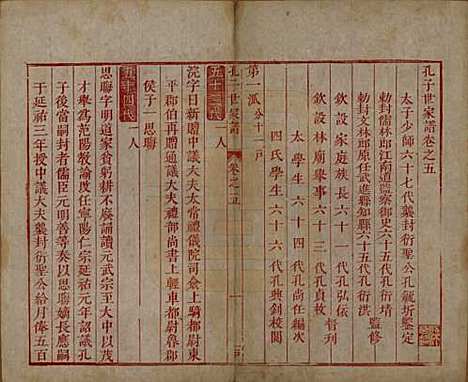 孔子世家譜卷之五
太子少師六十七代襲封衍聖公孔毓圻鑒定
勅封文林郎河南道監察御史六十五代孔衍㻞
勅封文林郎原任武進縣知縣六十五代孔衍洪
監修
欽設家庭族長六十一代孔弘依
欽設林廟舉事六十三代孔貞枚
督刊
太學生六十四代孔尚任編次
四氏學生六十六代孔興釗校閱
第一派分十一戶
孔子世家譜
卷之五
一
五十三代
一人
浣字日新贈中議大夫太常禮儀院司僉上騎都尉東
平郡伯再贈通議大夫禮部尚書上輕車都尉魯郡
侯子一思晦
五十四代
一人
思晦字明道家貧躬耕不廢誦讀元武宗至大中以茂
才舉為范陽教諭度任寧陽仁宗延祐元年詔議孔
子後當嗣封者儒臣元明善等奏以思晦嫡長應嗣
于延祐三年授中議大夫襲封衍聖公給月俸五百